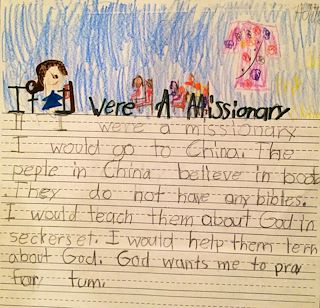 If I Were A Missionary
If I were a missionary
I would go to China. The
peple in China believe in booda
They do not have any bibles.
I would teach them about God in
seckerset. I would help them lern
about God. God wants me to pra
for tum.